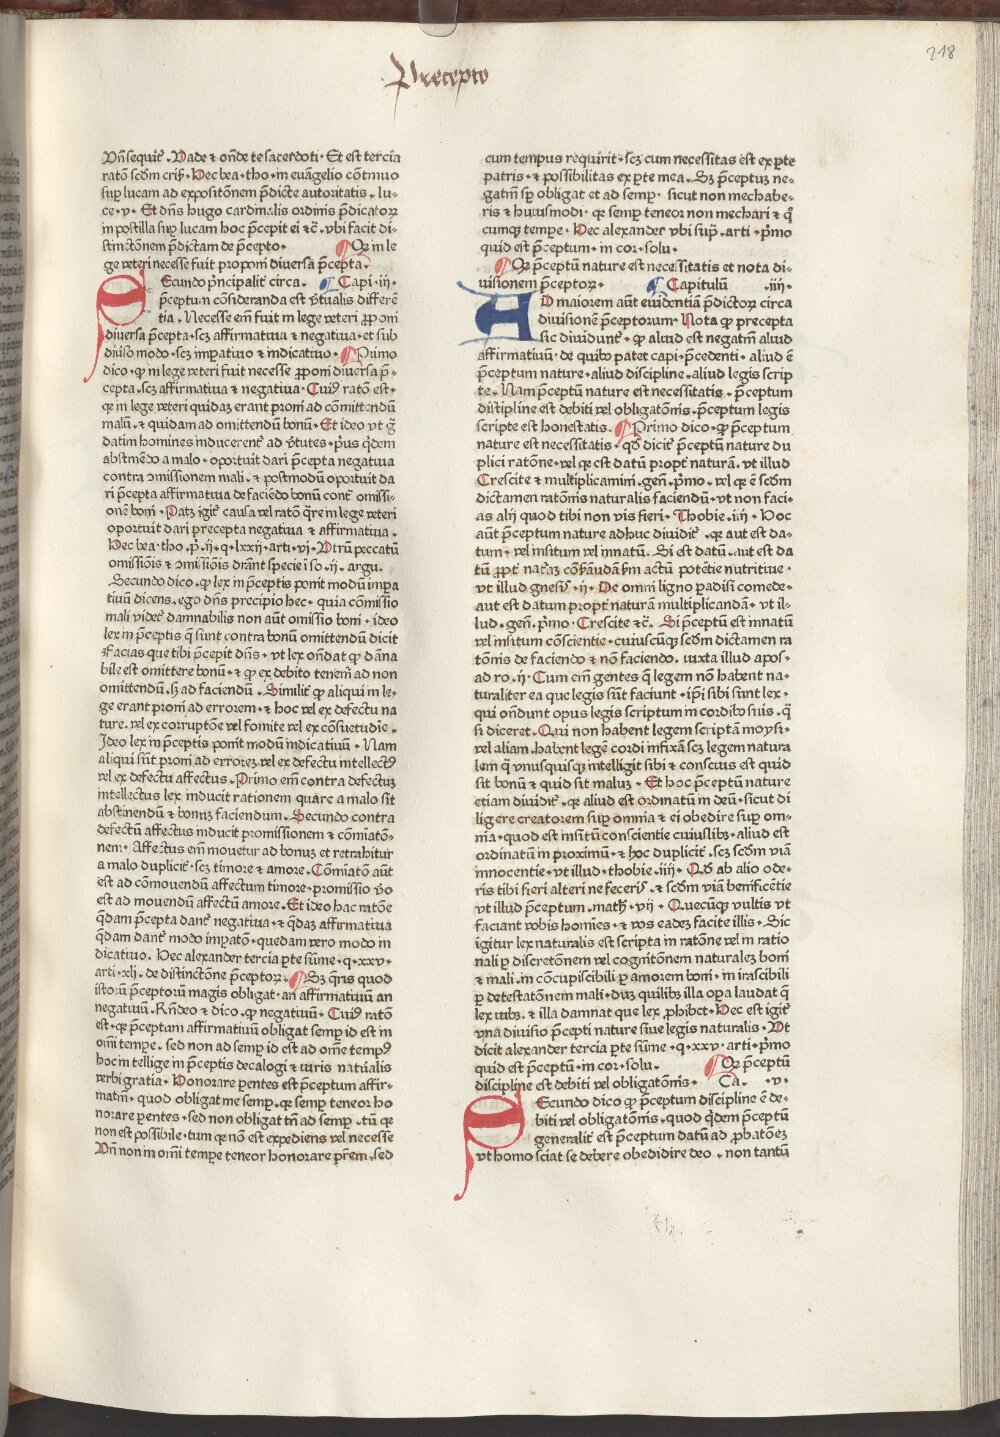 Precepto
218
Vn̄ sequit᷑. Vade ⁊ oñde te sacerdoti. Et est tercia
ratō scd̄m cris̄. Hec bea. tho. in euāgelio cōtinuo
suꝑ lucam ad expositōnem p̄dicte autoritatis. lu-
ce. v. Et dn̄s hugo cardinalis ordinis p̄dicatoꝝ
in postilla suꝑ lucam hoc p̄cepit ei ⁊c̄. vbi facit di-
stinctōnem p̄dictam de p̄cepto. Qꝫ in le
ge veteri necesse fuit proponi diuersa p̄cepta.
Secundo pͥncipalit᷑ circa. Capi. iii.
p̄ceptum cōsideranda est v̄tualis differē
tia. Necesse em̄ fuit in lege veteri ꝓponi
diuersa p̄cepta. scꝫ affirmatiua ⁊ negatiua. et sub
diuiso modo. scꝫ imꝑatiuo ⁊ indicatiuo. Primo
dico. ꝙ in lege veteri fuit necesse ꝓponi diuersa p̄-
cepta. scꝫ affirmatiua ⁊ negatiua. Cuiꝰ ratō est.
qꝛ in lege veteri quidaꝫ erant proni ad cōmittendū
malū. ⁊ quidam ad omittendū bonū. Et ideo vt g̊
datim homines inducerent᷑ ad v̄tutes. pͥus qͥdem
abstinēdo a malo. oportuit dari p̄cepta negatiua
contra ↄmissionem mali. ⁊ postmodū oportuit da
ri p̄cepta affirmatiua de faciēdo bonū contͣ omissi-
onē boni. Patꝫ igit᷑ causa vel ratō qͣre in lege veteri
oportuit dari precepta negatiua ⁊ affirmatiua.
Hec bea. tho. pͣ. ij. q. lxxij. arti. vj. Vtrū peccatū
omissiōis ⁊ ↄmissiōis dr̄ant specie i so. ij. argu.
Secundo dico. ꝙ lex in p̄ceptis ponit modū imꝑa
tiuū dicens. ego dn̄s precipio hec. quia cōmissio
mali videt᷑ damnabilis non aūt omissio boni. ideo
lex in p̄ceptis q̄ sunt contra bonū omittendū dicit
Facias que tibi p̄cepit dn̄s. vt lex oñdat ꝙ dāna
bile est omittere bonū. ⁊ ꝙ ex debito tenem᷑ ad non
omittendū. sꝫ ad faciendū. Similit᷑ ꝙ aliqui in le-
ge erant proni ad errorem. ⁊ hoc vel ex defectu na
ture. vel ex corruptōe vel fomite vel ex cōsuetudīe.
Ideo lex in p̄ceptis ponit modū indicatiuū. Nam
aliqui sūt proni ad erroreꝫ vel ex defectu intellectꝰ
vel ex defectu affectus. Primo em̄ contra defectuꝫ
intellectus lex inducit rationem quare a malo sit
abstinendū ⁊ bonuꝫ faciendum. Secundo contra
defectū affectus inducit promissionem ⁊ cōmiatō-
nem. Affectus em̄ mouetur ad bonuꝫ et retrahitur
a malo duplicit᷑. scꝫ timore ⁊ amore. Cōmiatō aūt
est ad cōmouendū affectum timore. promissio v̊o
est ad mouendū affectū amore. Et ideo hac ratōe
q̄dam p̄cepta dant᷑ negatiua. ⁊ q̄daꝫ affirmatiua
q̄dam dant᷑ modo imꝑatō. quedam vero modo in
dicatiuo. Hec alexander tercia ꝑte sūme. q. xxv.
arti. xlj. de distinctōne p̄ceptoꝝ. Sꝫ qͥris quod
istoꝝ p̄ceptorū magis obligat. an affirmatiuū an
negatiuū. Rn̄deo ⁊ dico. ꝙ negatiuū. Cuiꝰ ratō
est. qꝛ p̄ceptum affirmatiuū obligat semꝑ id est in
om̄i tempe. sed non ad semꝑ id est ad om̄e tempꝰ
hoc intellige in p̄ceptis decalogi ⁊ iuris natu̇alis
verbi gratia. Honorare ꝑentes est p̄ceptum affir-
matiū. quod obligat me semꝑ. qꝛ semꝑ teneor ho
norare ꝑentes. sed non obligat tn̄ ad semꝑ. tū qꝛ
non est possibile. tum qꝛ nō est expediens vel necesse
Vn̄ non in om̄i tempe teneor honorare pr̄em. sed
cum tempus requirit. scꝫ cum necessitas est ex ꝑte
patris. ⁊ possibilitas ex ꝑte mea. Sꝫ p̄ceptuꝫ ne-
gatiū sꝑ obligat et ad semꝑ. sicut non mechabe-
ris ⁊ huiusmodi. qꝛ semꝑ teneor non mechari ⁊ qͦ
cumqꝫ tempe. Hec alexander vbi sup̄. arti. pͥmo
quid est p̄ceptum. in cor. solu.
Qꝫ p̄ceptū nature est necessitatis et nota di-
uisionem p̄ceptoꝝ. Capitulū .iiij.
AD maiorem aūt euidentiā p̄dictoꝝ circa
diuisionē p̄ceptorum. Nota ꝙ precepta
sic diuidunt᷑. ꝙ aliud est negatiū aliud
affirmatiuū. de quibꝰ patet capi. p̄cedenti. aliud ē
p̄ceptum nature. aliud discipline. aliud legis scrip
te. Nam p̄ceptū nature est necessitatis. p̄ceptum
disciplineestdebitivelobligatōnis.p̄ceptumlegis
scripte est honestatis. Primo dico. ꝙ p̄ceptum
nature est necessitatis. qd̄ dicit᷑ p̄ceptū nature du
plici ratōne. vel qꝛ est datū propt᷑ naturā. vt illud
Crescite ⁊ multiplicamini. gen̄. pͥmo. vel qꝛ ē scd̄m
dictamen ratōnis naturalis faciendū. vt non faci-
as alij quod tibi non vis fieri. Thobie. iiij. Hoc
aūt p̄ceptum nature adhuc diuidit᷑. qꝛ aut est da-
tum. vel insitum vel innatū. Si est datū. aut est da
tū ꝓpt᷑ natͣaꝫ cōseruādā scd̄m actū potētie nutritiue.
vt illud gnes̄. ij. De omni ligno paradisi comede.
aut est datum propt᷑ naturā multiplicandā. vt il-
lud. gen̄. pͥmo. Crescite ⁊c̄. Si p̄ceptū est innatū
vel insitum cōscientie. cuiuscūqꝫ scd̄m dictamen ra
tōnis de faciendo ⁊ nō faciendo. iuxta illud apos-
ad ro. ij. Cum em̄ gentes q̄ legem nō habent na-
turaliter ea que legis sūt faciunt. ip̄i sibi sunt lex.
qui oñdunt opus legis scriptum in cordibꝰ suis. qͣ
si diceret. Qui non habent legem scriptā moysi.
vel aliam. habent legē cordi infixā scꝫ legem natura
lem q̄ vnusquisqꝫ intelligit sibi ⁊ conscius est quid
sit bonū ⁊ quid sit maluꝫ. Et hoc p̄ceptū nature
etiam diuidit᷑. qꝛ aliud est ordinatū in deū. sicut di
ligere creatorem suꝑ omnia ⁊ ei obedire suꝑ om-
nia. quod est insitū conscientie cuiuslibꝫ. aliud est
ordinatū in proximū. ⁊ hoc duplicit᷑. scꝫ scd̄m viā
innocentie. vt illud. thobie. iiij. Qd̄ ab alio ode-
ris tibi fieri alteri ne feceris. ⁊ scd̄m viā benificētie
vt illud p̄ceptum. math̄. vij. Quecūqꝫ vultis vt
faciant vobis hoīes. ⁊ vos eadeꝫ facite illis. Sic
igitur lex naturalis est scripta in ratōne vel in ratio
nali ꝑ discretōnem vel cognitōnem naturaleꝫ boni
⁊ mali. in cōcupiscibili ꝑ amorem boni. in irascibili
ꝑ detestatōnem mali. duꝫ quilibꝫ illa oꝑa laudat q̄
lex iubꝫ. ⁊ illa damnat que lex ꝓhibet. Hec est igit᷑
vna diuisio p̄cepti nature siue legis naturalis. Vt
dicit alexander tercia ꝑte sūme. q. xxv. arti. pͥmo
quid est p̄ceptū. in cor. solu. Qꝫ p̄ceptū
discipline est debiti vel obligatōnis. Ca. .v.
Secundo dico ꝙ p̄ceptum discipline ē de-
biti vel obligatōnis. quod qͥdem p̄ceptū
generalit᷑ est p̄ceptum datū ad ꝓbatōeꝫ
vt homo sciat se debere obedidire deo. non tantū